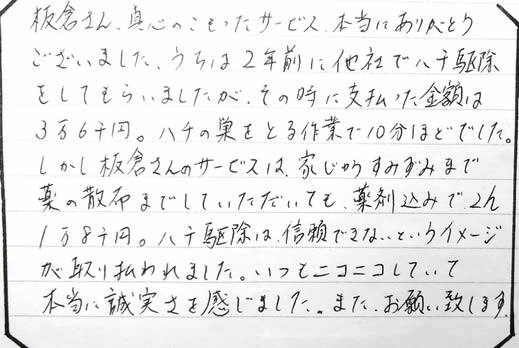 板倉さん、真心のこもったサービス、本当にありがとう
ございました。うちは2年前に他社でハチ駆除
をしてもらいましたが、その時に支払った金額は
3万6千円。ハチの巣をとる作業で10分ほどでした。
しかし板倉さんのサービスは、家じゅうすみずみまで
薬の散布までしていただいても、薬剤込みで、
1万8千円。ハチ駆除は、信頼できないというイメージ
が取り払われました。いつもニコニコしていて
本当に誠実さを感じました。また、お願い致します。